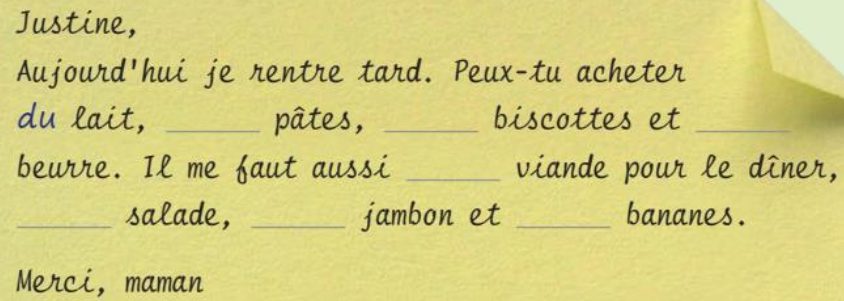 Justine,
Aujourd'hui je rentre tard. Peux-tu acheter
du lait, ______ pâtes, ______ biscottes et ______
beurre. Il me faut aussi ______ viande pour le dîner,
______ salade, ______ jambon et ______ bananes.
Merci, maman